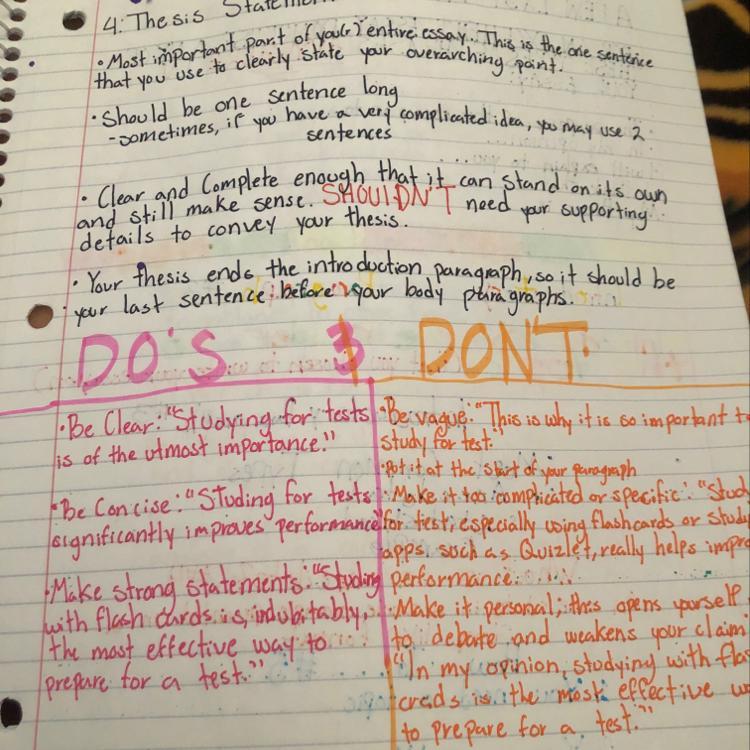 4. Thesis Statement
• Most important part of you(r) entire essay. This is the one sentence
that you use to clearly state your overarching point.
• Should be one sentence long
- sometimes, if you have a very complicated idea, you may use 2
sentences
• Clear and Complete enough that it can stand on its own
and still make sense. SHOULDN'T need your supporting
details to convey your thesis.
• Your thesis ends the introduction paragraph, so it should be
your last sentence before your body paragraphs.
DO'S & DONT
• Be Clear: "Studying for tests
is of the utmost importance."
• Be Concise: "Studing for tests
significantly improves performance"
• Make strong statements: "Studing
with flash cards is, indubitably,
the most effective way to
prepare for a test."
• Be vague: "This is why it is so important to
study for test."
• Put it at the start of your paragraph
• Make it too complicated or specific: "Stud
for test, especially using flashcards or studi
apps, such as Quizlet, really helps impro
performance.
• Make it personal; this opens yourself
to debate and weakens your claim
"In my opinion, studying with flas
crads is the most effective w
to prepare for a test."